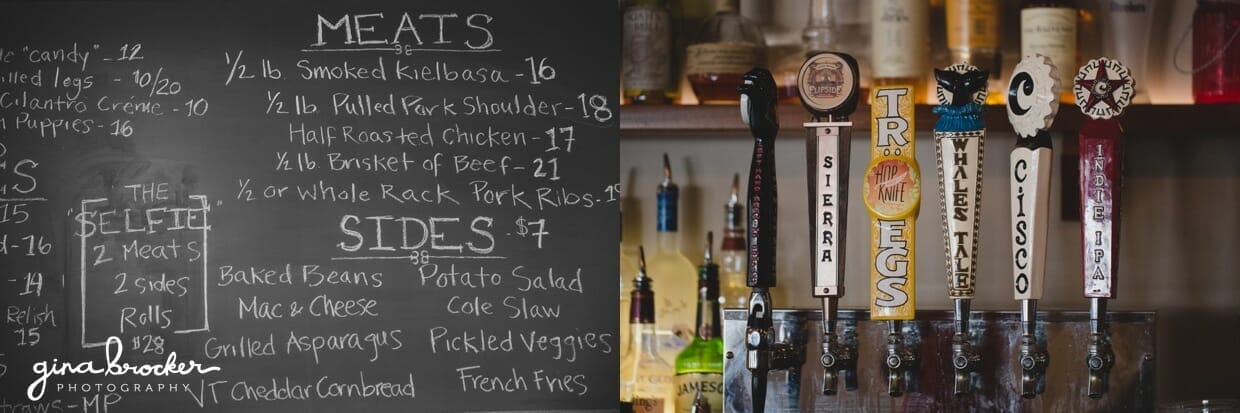 "candy" - 12
legs - 10/20
Cilantro Creme - 10
Puppies - 16
S
15
-16
-14
Relish
15
- MP
THE
"SELFIE"
2 Meats
2 sides
Rolls
$28
gina brocker
PHOTOGRAPHY
MEATS
1/2 lb. Smoked Kielbasa - 16
1/2 lb. Pulled Pork Shoulder - 18
Half Roasted Chicken - 17
1/2 lb. Brisket of Beef - 21
1/2 or Whole Rack Pork Ribs -
SIDES - $7
Baked Beans Potato Salad
Mac & Cheese Cole Slaw
Grilled Asparagus Pickled Veggies
VT Cheddar Cornbread French Fries
FLIPSIDE
SIERRA
TRÖEGS
HOP KNIFE
WHALES TALE
C
CISCO
C
INDIE IPA
JAMES